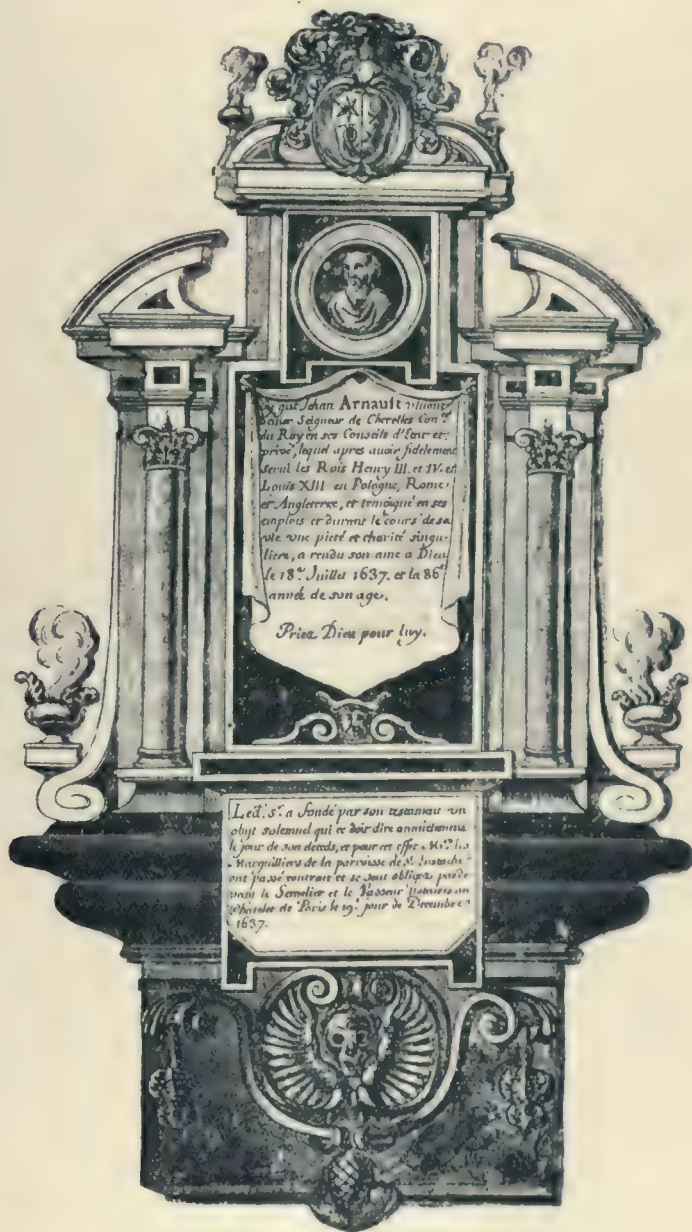 Cy gist Jehan Arnault vivant
Seigneur de Cherelles Con.er
du Roy en ses Conseils d'Etat et
privé, lequel apres auoir fidelement
serui les Rois Henry III. et IV. et
Louis XIII en Pologne, Rome
et Angleterre, et temoigné en ses
emplois et durant le cours de sa
vie vne pieté et charité singu-
liere, a rendu son ame a Dieu
le 18.e Juillet 1637. et la 86.e
année de son age.
Priez Dieu pour luy.
Led. Sr. a fondé par son testament un
obyt solemnel qui ce doit dire annuellement
le jour de son deceds, et pour cet effet Mrs. les
Marguilliers de la parroisse de St. Eustache
ont passé contract et se sont obligez parde
vant le Semelier et le Vasseur notaires au
Chatelet de Paris le 19.e jour de Decembre
1637.